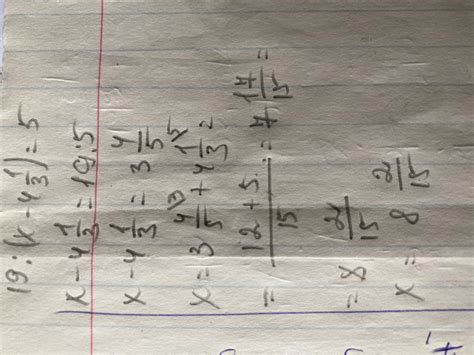 19 : (x - 4 1/3) = 5
x - 4 1/3 = 19 : 5
x - 4 1/3 = 3 4/5
x = 3 4/5 \3 + 4 1/3 \5 =
= 12 + 5 / 15 = 7 17/15 =
= 8 2/15
x = 8 2/15